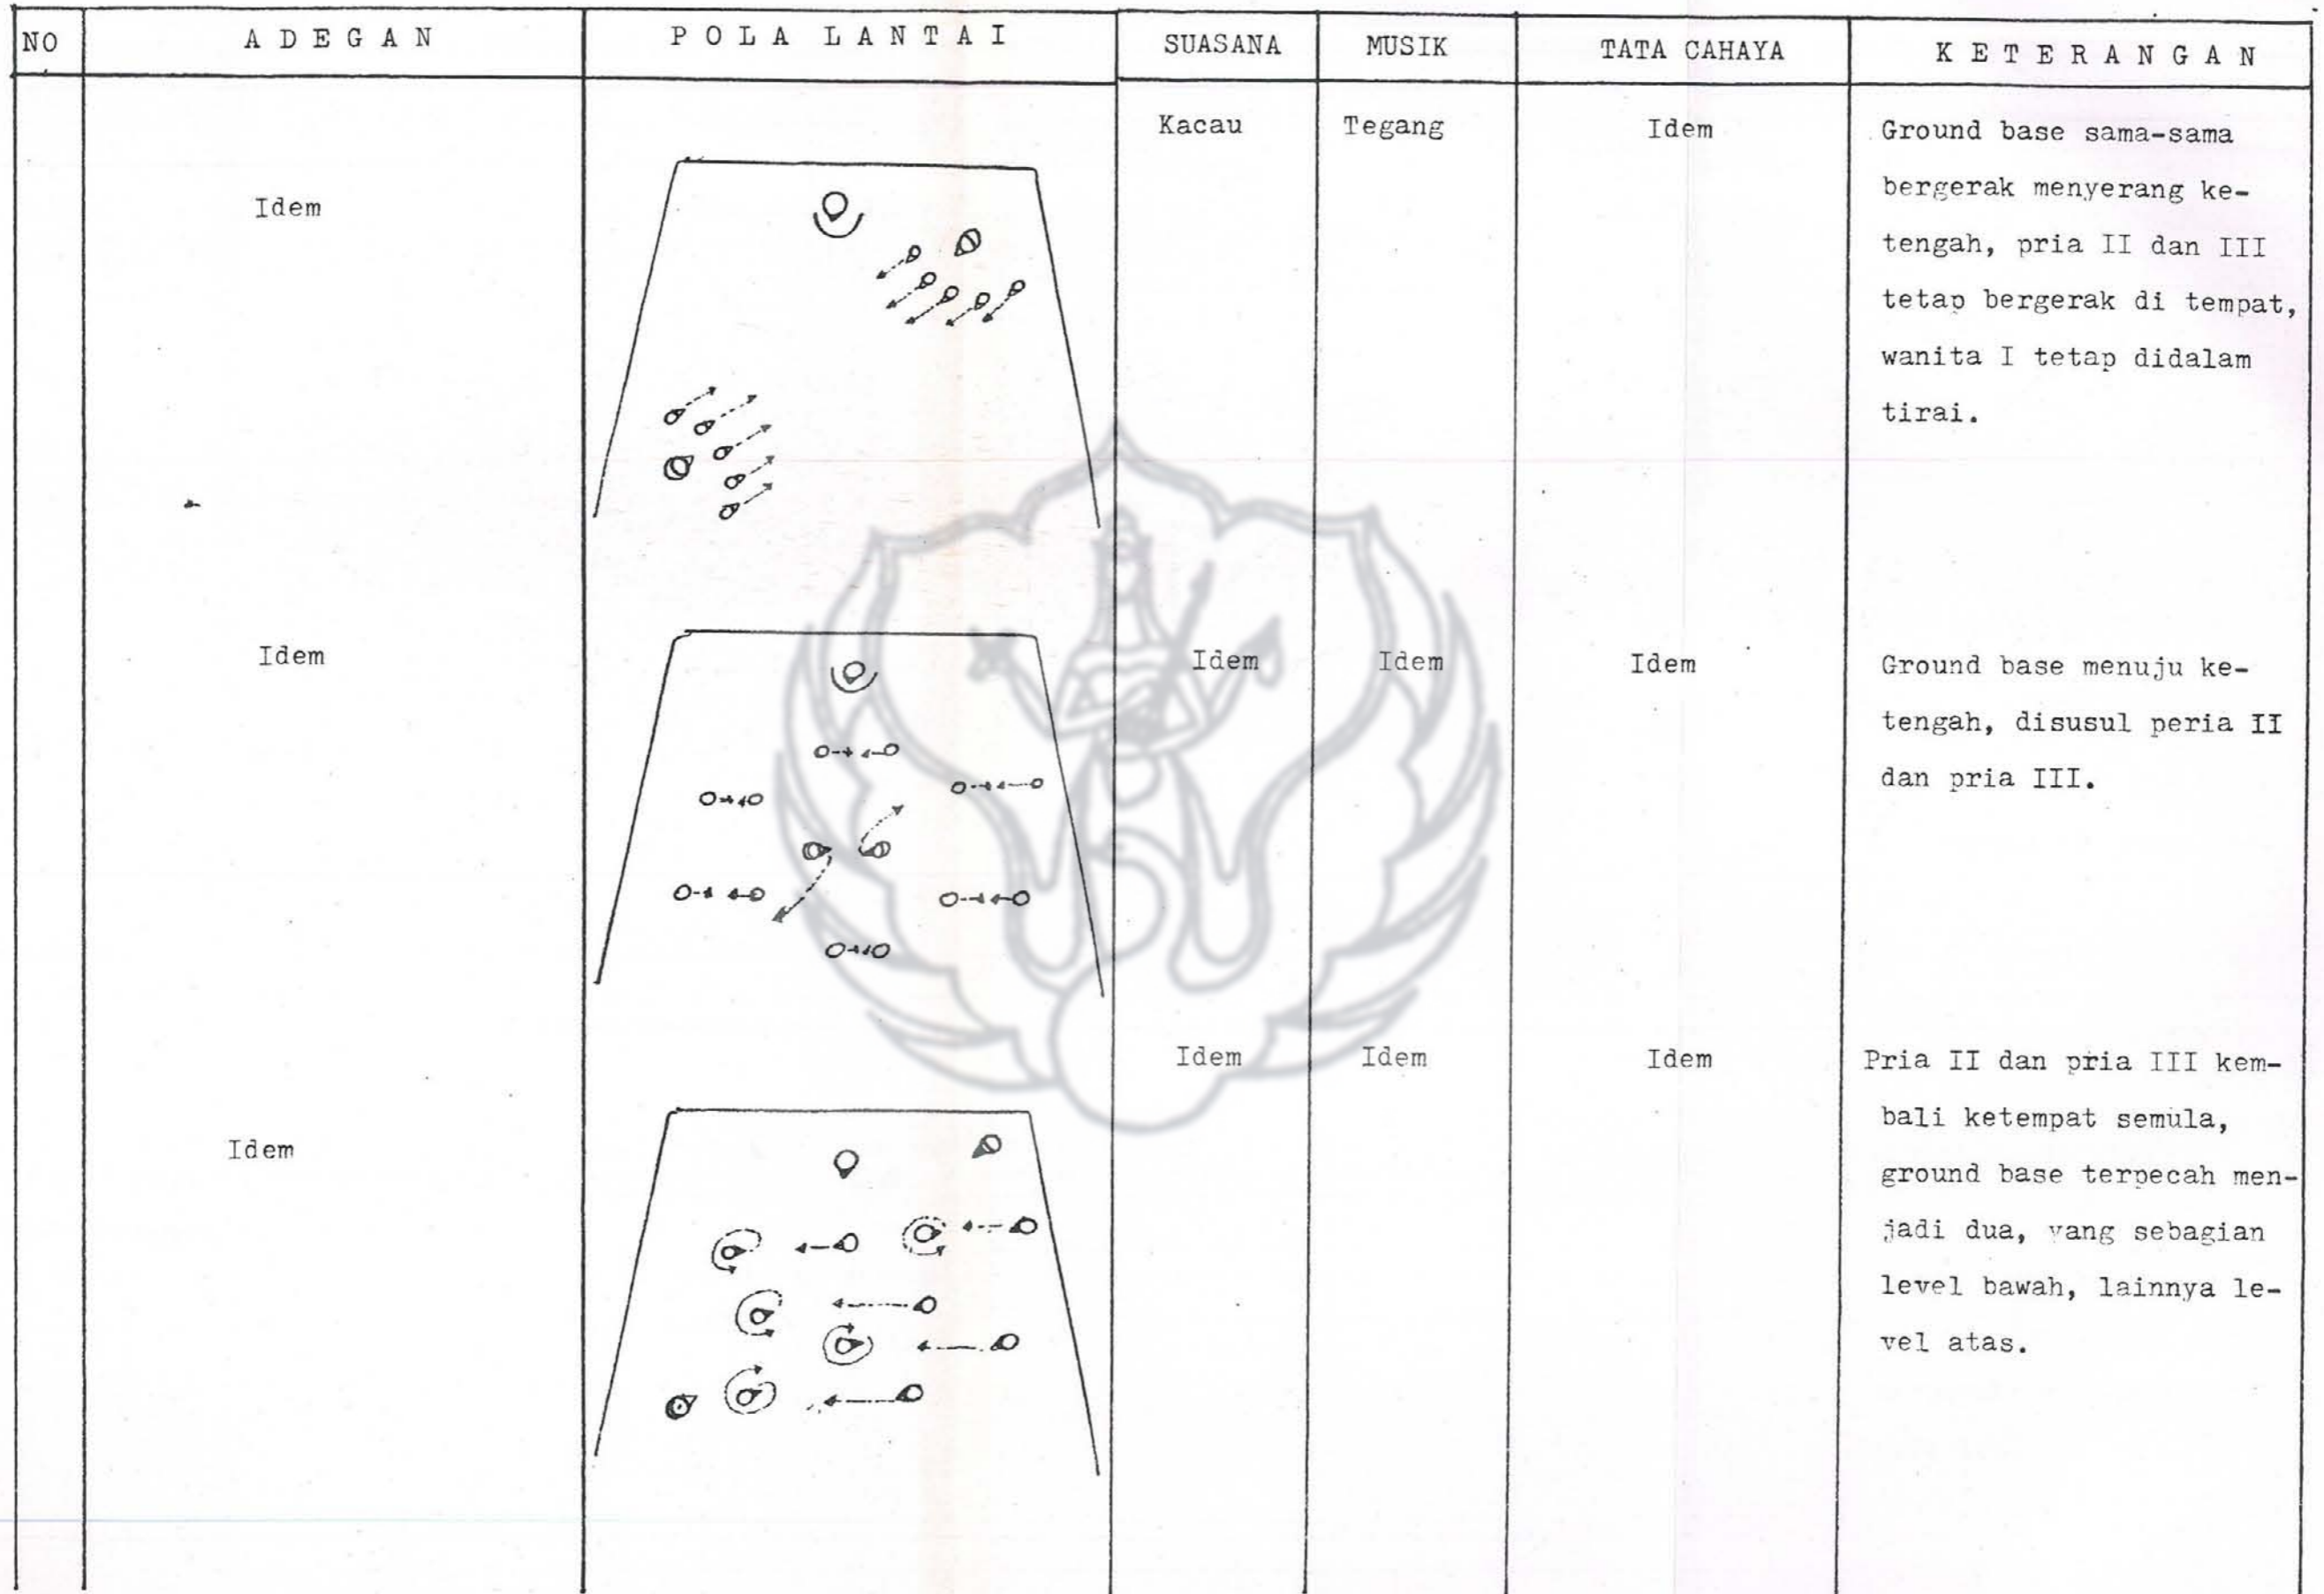 NO
A D E G A N
P O L A  L A N T A I
SUASANA
MUSIK
TATA CAHAYA
K E T E R A N G A N
Idem
Kacau
Tegang
Idem
Ground base sama-sama
bergerak menyerang ke-
tengah, pria II dan III
tetap bergerak di tempat,
wanita I tetap didalam
tirai.
Idem
Idem
Idem
Idem
Ground base menuju ke-
tengah, disusul peria II
dan pria III.
Idem
Idem
Idem
Idem
Pria II dan pria III kem-
bali ketempat semula,
ground base terpecah men-
jadi dua, yang sebagian
level bawah, lainnya le-
vel atas.